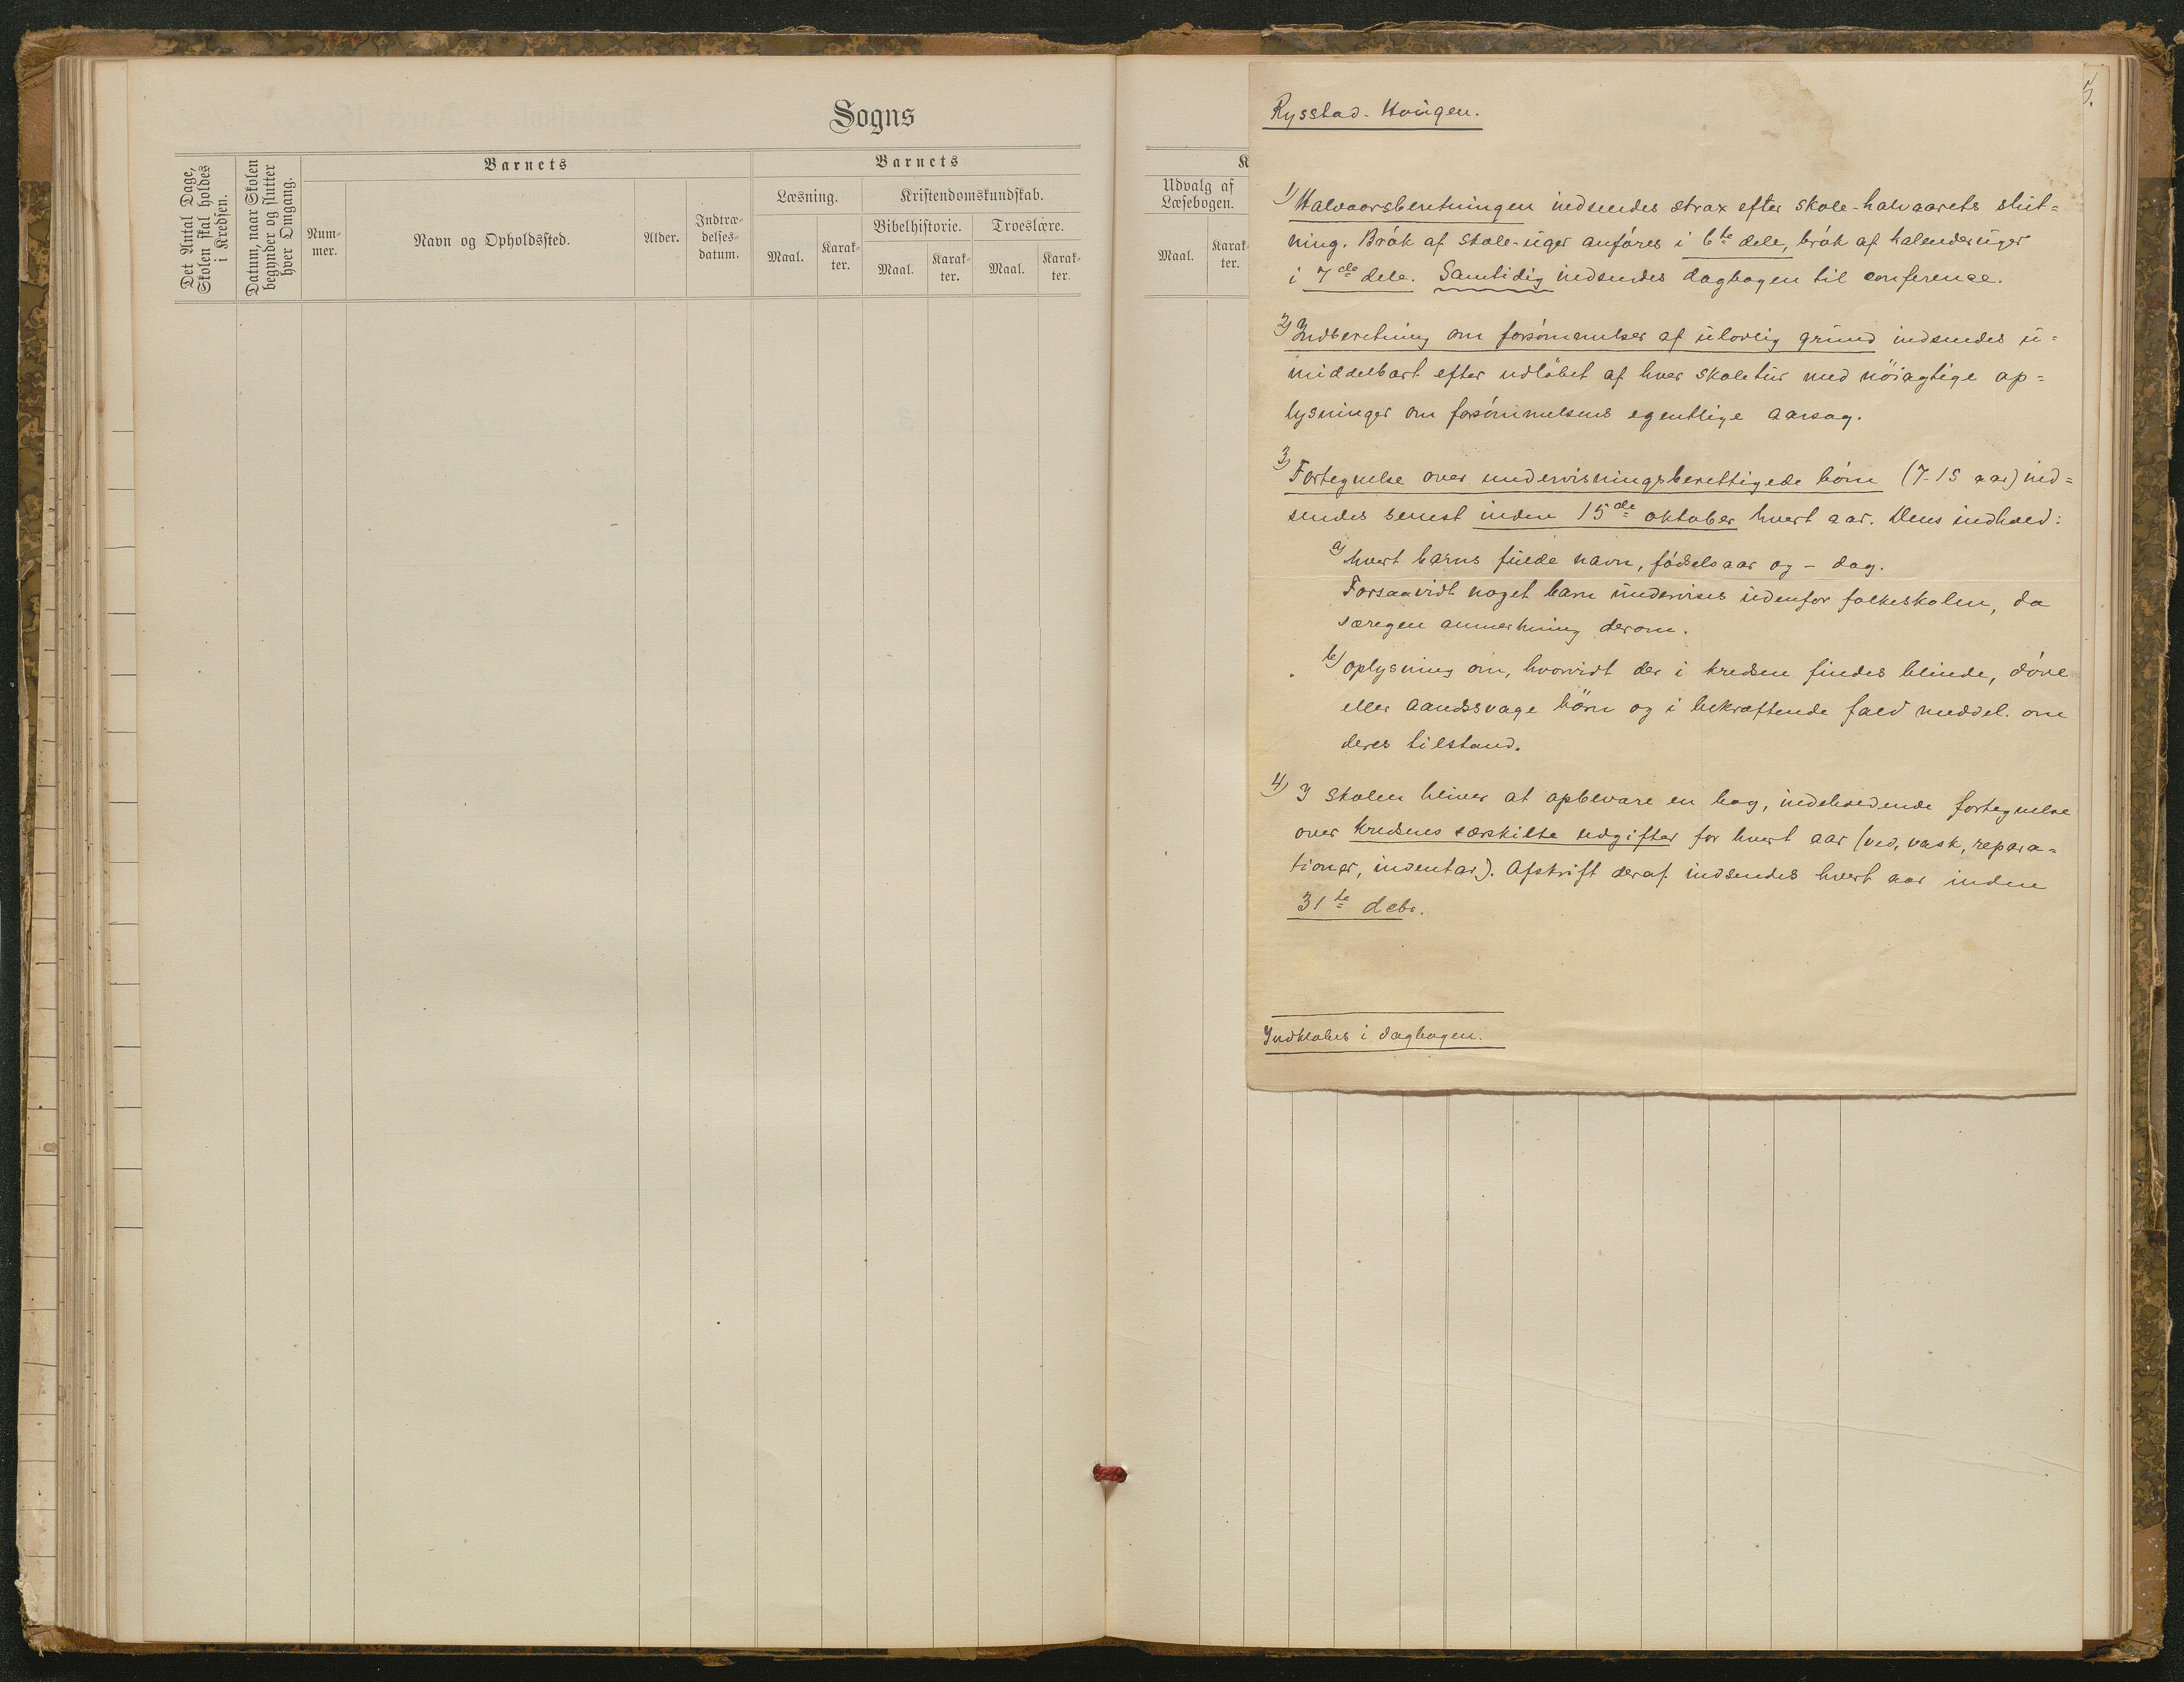 Sogns
Det Antal Dage,
Skolen skal holdes
i Kredsen.
Datum, naar Skolen
begynder og slutter
hver Omgang.
Barnets
Num-
mer.
Navn og Opholdssted.
Alder.
Indtræ-
delses-
datum.
Barnets
Læsning.
Kristendomskundskab.
Bibelhistorie.
Troeslære.
Maal.
Karak-
ter.
Maal.
Karak-
ter.
Maal.
Karak-
ter.
K
Udvalg af
Læsebogen.
Maal.
Karak-
ter.
5.
Rysstad-Hougen.
1) Halvaarsberetningen indsendes strax efter skole-halvaarets slut=
ning. Brók af skole-uger anføres i 6te dele, brók af kalenderuger
i 7de dele. Samtidig indsendes dagbogen til conference.
2) Indberetning om forsömmelser af ulovlig grund indsendes u=
middelbart efter udløbet af hver skoletur med nöiagtige op=
lysninger om forsömmelsens egentlige aarsag.
3) Fortegnelse over undervisningsberettigede börn (7-15 aar) ind=
sendes senest inden 15de oktober hvert aar. Dens indhold:
a) hvert barns fulde navn, födselsaar og - dag.
Forsaavidt noget barn undervises udenfor folkeskolen, da
særegen anmerkning derom.
b) oplysning om, hvorvidt der i kredsen findes blinde, döve
eller aandssvage börn og i bekræftende fald meddel. om
deres tilstand.
4) I skolen bliver at opbevare en bog, indeholdende fortegnelse
over kredsens særskilte udgifter for hvert aar (ved, vask, repara=
tioner, inventar). Afskrift deraf indsendes hvert aar inden
31te debr.
Indklæbes i dagbogen.